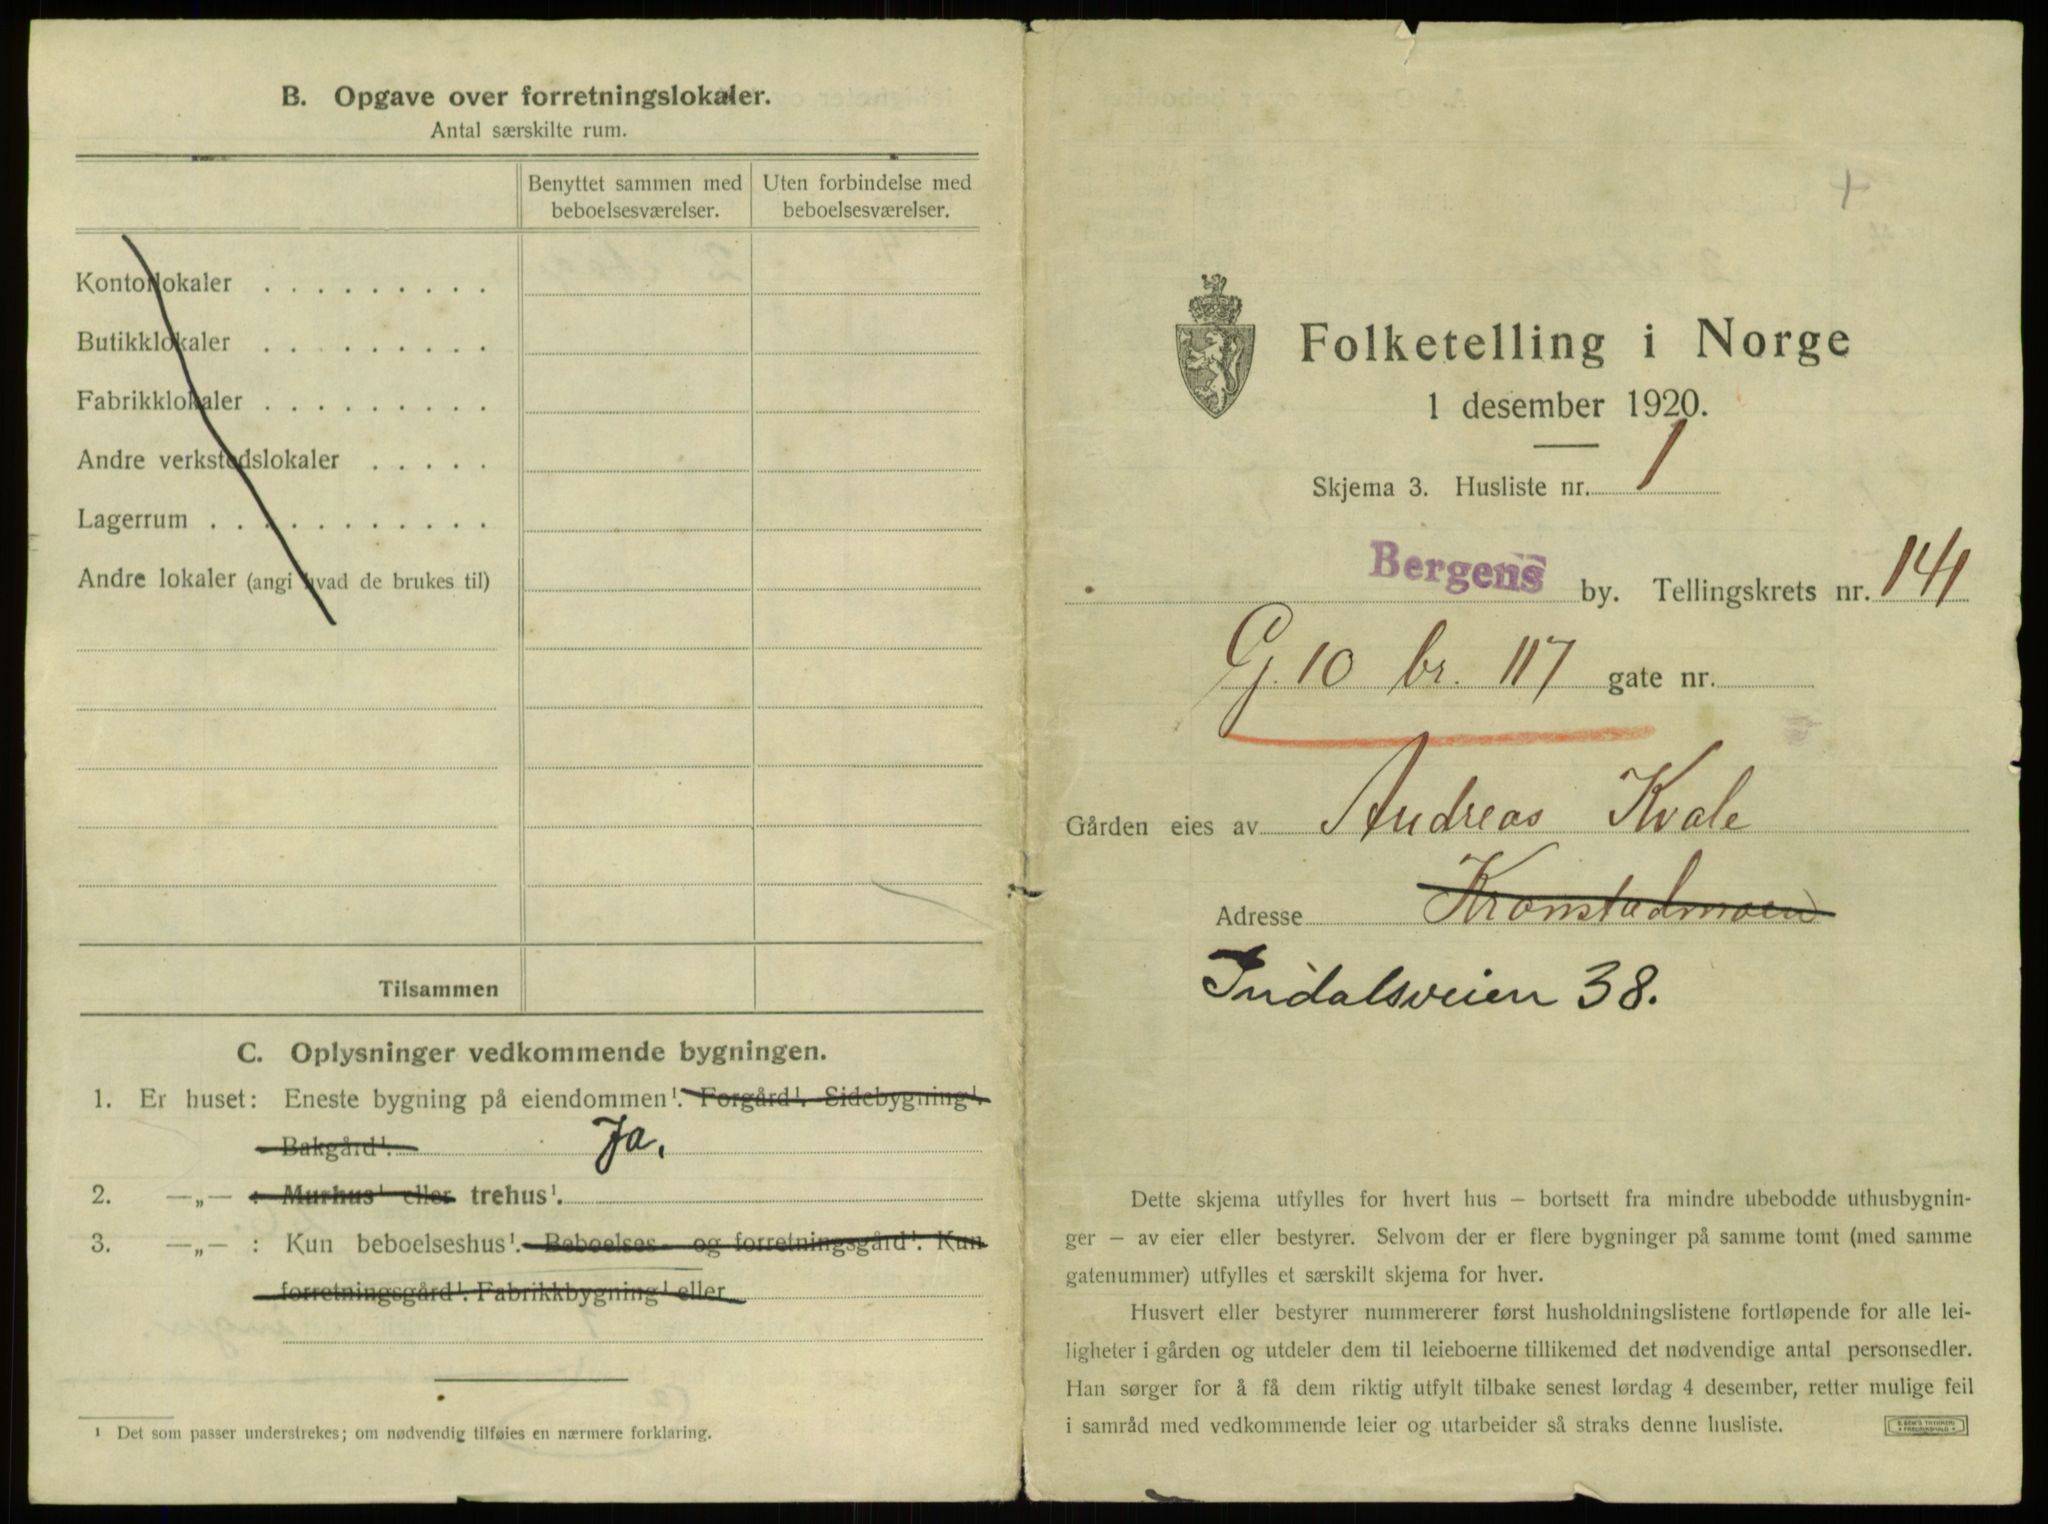 B. Opgave over forretningslokaler.
Antal særskilte rum.
Benyttet sammen med beboelsesværelser.
Uten forbindelse med beboelsesværelser.
Kontorlokaler . . . . . . . . .
Butikklokaler . . . . . . . . .
Fabrikklokaler . . . . . . . . .
Andre verkstedslokaler . . . . .
Lagerrum . . . . . . . . . . .
Andre lokaler (angi hvad de brukes til)
Tilsammen
C. Oplysninger vedkommende bygningen.
1. Er huset: Eneste bygning på eiendommen¹. Forgård¹. Sidebygning¹.
Bakgård¹. Ja.
2. —„— : Murhus¹ eller trehus¹.
3. —„— : Kun beboelseshus¹. Beboelses- og forretningsgård¹. Kun
forretningsgård¹. Fabrikkbygning¹ eller
¹ Det som passer understrekes; om nødvendig tilføies en nærmere forklaring.
Folketelling i Norge
1 desember 1920.
Skjema 3. Husliste nr. 1
Bergens by. Tellingskrets nr. 141
G. 10 br. 117 gate nr.
Gården eies av Andreas Kvale
Adresse Kronstadmoen
Indalsveien 38.
Dette skjema utfylles for hvert hus – bortsett fra mindre ubebodde uthusbygnin-
ger – av eier eller bestyrer. Selvom der er flere bygninger på samme tomt (med samme
gatenummer) utfylles et særskilt skjema for hver.
Husvert eller bestyrer nummererer først husholdningslistene fortløpende for alle lei-
ligheter i gården og utdeler dem til leieboerne tillikemed det nødvendige antal personsedler.
Han sørger for å få dem riktig utfylt tilbake senest lørdag 4 desember, retter mulige feil
i samråd med vedkommende leier og utarbeider så straks denne husliste.